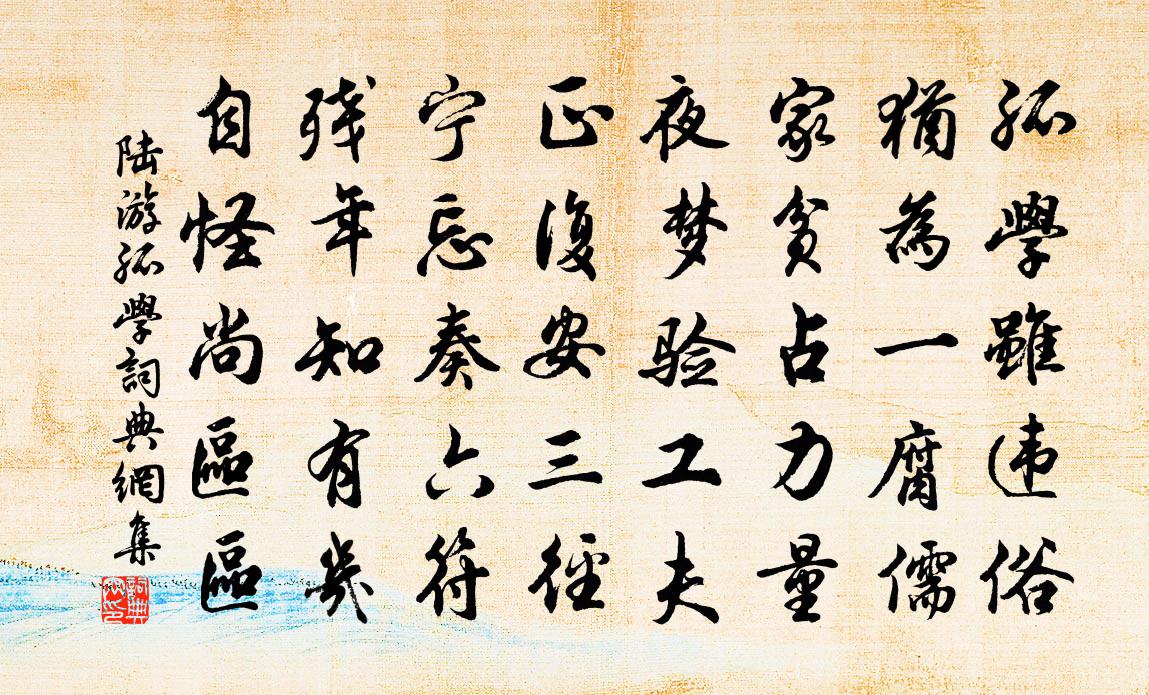 孤學雖违俗
猶為一腐儒
家贫占力量
夜梦验工夫
正復安三徑
宁忘奏六符
残年知有幾
自怪尚區區
陆游孤學詞典網集